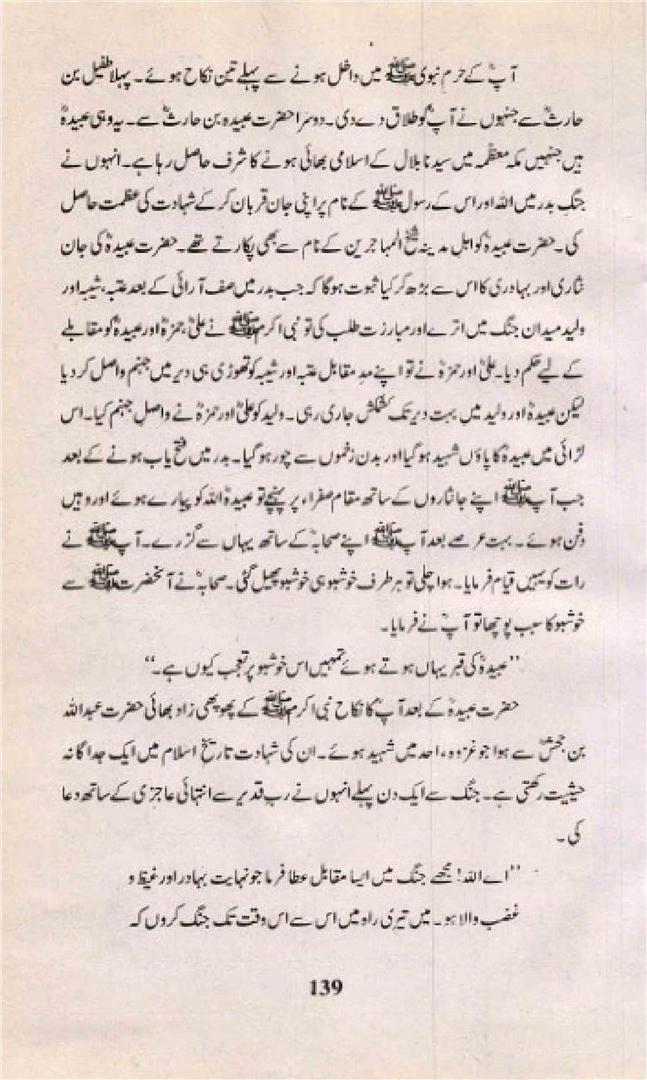 آپؓ کے حرم نبوی ﷺ میں داخل ہونے سے پہلے تین نکاح ہوئے۔ پہلا طفیل بن
حارثؓ سے جنہوں نے آپؓ کو طلاق دے دی۔ دوسرا حضرت عبیدہ بن حارثؓ سے۔ یہ وہی عبیدہؓ
ہیں جنہیں مکہ معظمہ میں سیدنا بلال کے اسلامی بھائی ہونے کا شرف حاصل رہا ہے۔ انہوں نے
جنگ بدر میں اللہ اور اس کے رسول ﷺ کے نام پر اپنی جان قربان کر کے شہادت کی عظمت حاصل
کی۔ حضرت عبیدہؓ کو اہل مدینہ شیخ المہاجرین کے نام سے بھی پکارتے تھے۔ حضرت عبیدہؓ کی جان
نثاری اور بہادری کا اس سے بڑھ کر کیا ثبوت ہو گا کہ جب بدر میں صف آرائی کے بعد عتبہ، شیبہ اور
ولید میدان جنگ میں اترے اور مبارزت طلب کی تو نبی اکرم ﷺ نے علیؓ، حمزہؓ اور عبیدہؓ کو مقابلے
کے لیے حکم دیا۔ علیؓ اور حمزہؓ نے تو اپنے مدِ مقابل عتبہ اور شیبہ کو تھوڑی ہی دیر میں جہنم واصل کر دیا
لیکن عبیدہؓ اور ولید میں بہت دیر تک کشمکش جاری رہی۔ ولید کو علیؓ اور حمزہؓ نے واصلِ جہنم کیا۔ اس
لڑائی میں عبیدہؓ کا پاؤں شہید ہو گیا اور بدن زخموں سے چور ہو گیا۔ بدر میں فتح یاب ہونے کے بعد
جب آپ ﷺ اپنے جانثاروں کے ساتھ مقام صفراء پر پہنچے تو عبیدہؓ اللہ کو پیارے ہوئے اور وہیں
دفن ہوئے۔ بہت عرصے بعد آپ ﷺ اپنے صحابہؓ کے ساتھ یہاں سے گزرے۔ آپ ﷺ نے
رات کو یہیں قیام فرمایا۔ ہوا چلی تو ہر طرف خوشبو ہی خوشبو پھیل گئی۔ صحابہؓ نے آنحضرت ﷺ سے
خوشبو کا سبب پوچھا تو آپؐ نے فرمایا۔
”عبیدہؓ کی قبر یہاں ہوتے ہوئے تمہیں اس خوشبو پر تعجب کیوں ہے۔“
حضرت عبیدہؓ کے بعد آپؓ کا نکاح نبی اکرم ﷺ کے پھوپھی زاد بھائی حضرت عبداللہ
بن جحشؓ سے ہوا جو غزوہء احد میں شہید ہوئے۔ ان کی شہادت تاریخ اسلام میں ایک جداگانہ
حیثیت رکھتی ہے۔ جنگ سے ایک دن پہلے انہوں نے رب قدیر سے انتہائی عاجزی کے ساتھ دعا
کی۔
”اے اللہ! مجھے جنگ میں ایسا مقابل عطا فرما جو نہایت بہادر اور غیظ و
غضب والا ہو۔ میں تیری راہ میں اس سے اس وقت تک جنگ کروں کہ
139